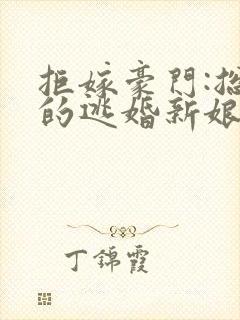 拒嫁豪门:
的逃婚新娘
丁錦霞